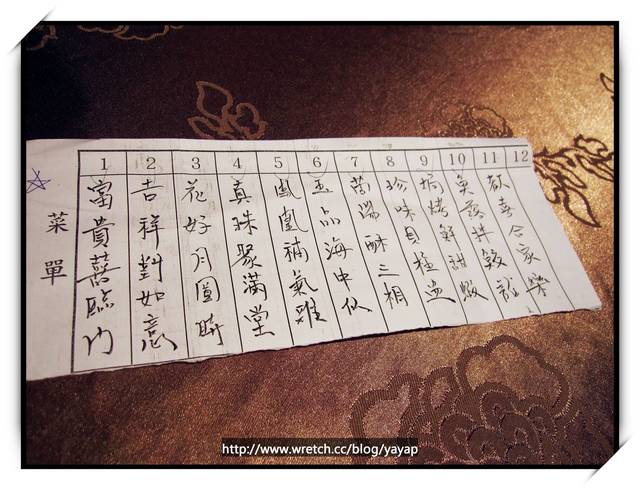 菜單
1 2 3 4 5 6 7 8 9 10 11 12
富貴囍臨門
吉祥對如意
花好月圓時
真珠聚滿堂
鳳凰補氣雞
玉品海中仙
酥三相
珍味貝
焗烤鮮甜蝦
歡喜合家樂
http://www.wretch.cc/blog/yayap